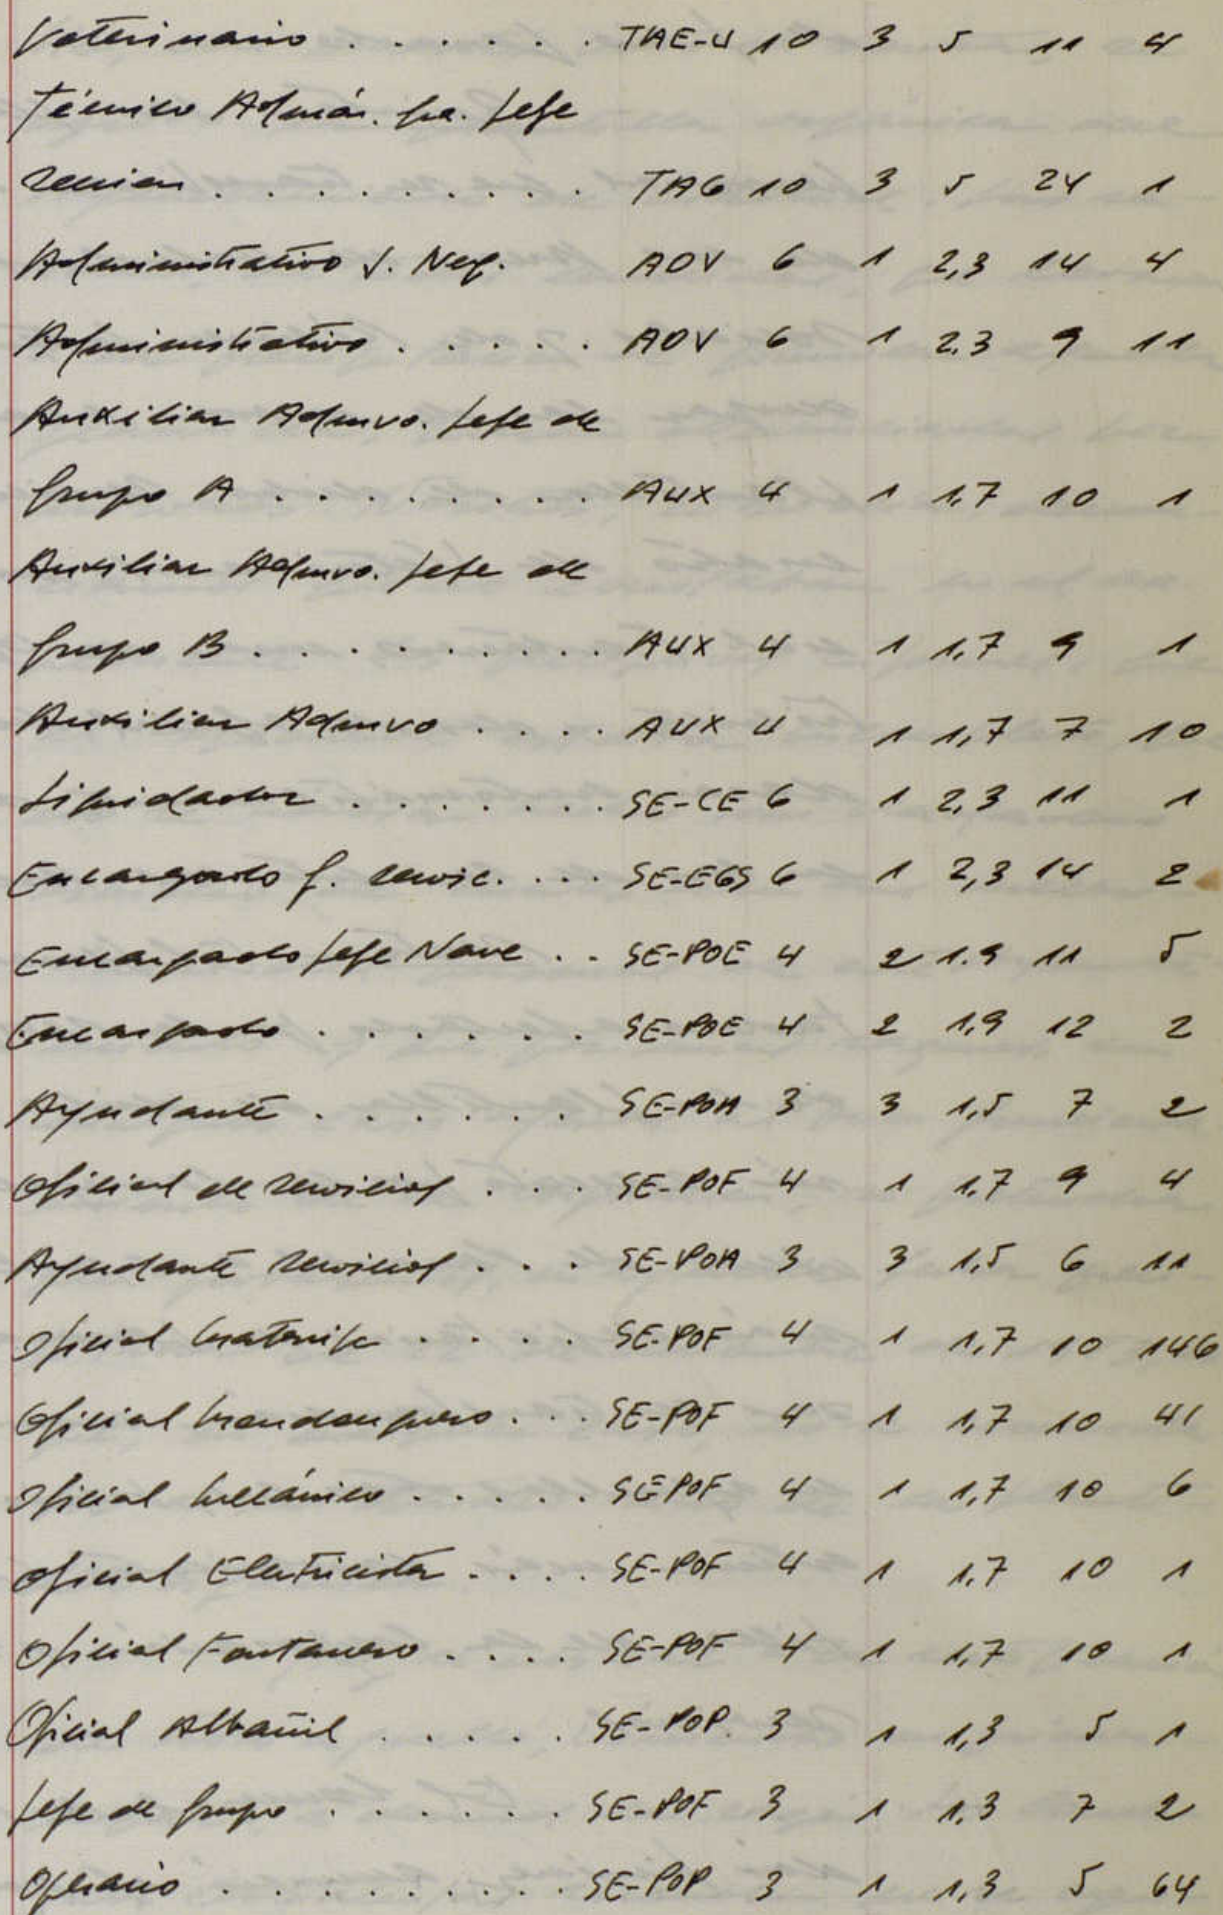 Veterinario . . . . . . TAE-U 10 3 5 11 4
Técnico Admón. Gral. Jefe
Sección . . . . . . . . . TAG 10 3 5 24 1
Administrativo J. Neg. ADV 6 1 2,3 14 4
Administrativo . . . . . ADV 6 1 2.3 9 11
Auxiliar Admvo. Jefe de
Grupo A . . . . . . . . AUX 4 1 1,7 10 1
Auxiliar Admvo. Jefe de
Grupo B . . . . . . . . . AUX 4 1 1,7 9 1
Auxiliar Admvo . . . . AUX 4 1 1,7 7 10
Liquidador . . . . . . . SE-CE 6 1 2,3 11 1
Encargado G. Servic. . . . SE-EGS 6 1 2,3 14 2
Encargado Jefe Nave . . SE-POE 4 2 1.9 11 5
Encargado . . . . . . SE-POE 4 2 1,9 12 2
Ayudante . . . . . . SE-POA 3 3 1,5 7 2
Oficial de Servicios . . . SE-POF 4 1 1.7 9 4
Ayudante Servicios . . . SE-POA 3 3 1,5 6 11
Oficial Matarife . . . . SE-POF 4 1 1,7 10 146
Oficial Mondonguero . . . SE-POF 4 1 1,7 10 41
Oficial Mecánico . . . . . SE POF 4 1 1,7 10 6
Oficial Electricista . . . . SE-POF 4 1 1.7 10 1
Oficial Fontanero . . . . SE-POF 4 1 1,7 10 1
Oficial Albañil . . . . . SE-POP. 3 1 1,3 5 1
Jefe de Grupo . . . . . . SE-POF 3 1 1.3 7 2
Operario . . . . . . . . . SE-POP 3 1 1,3 5 64